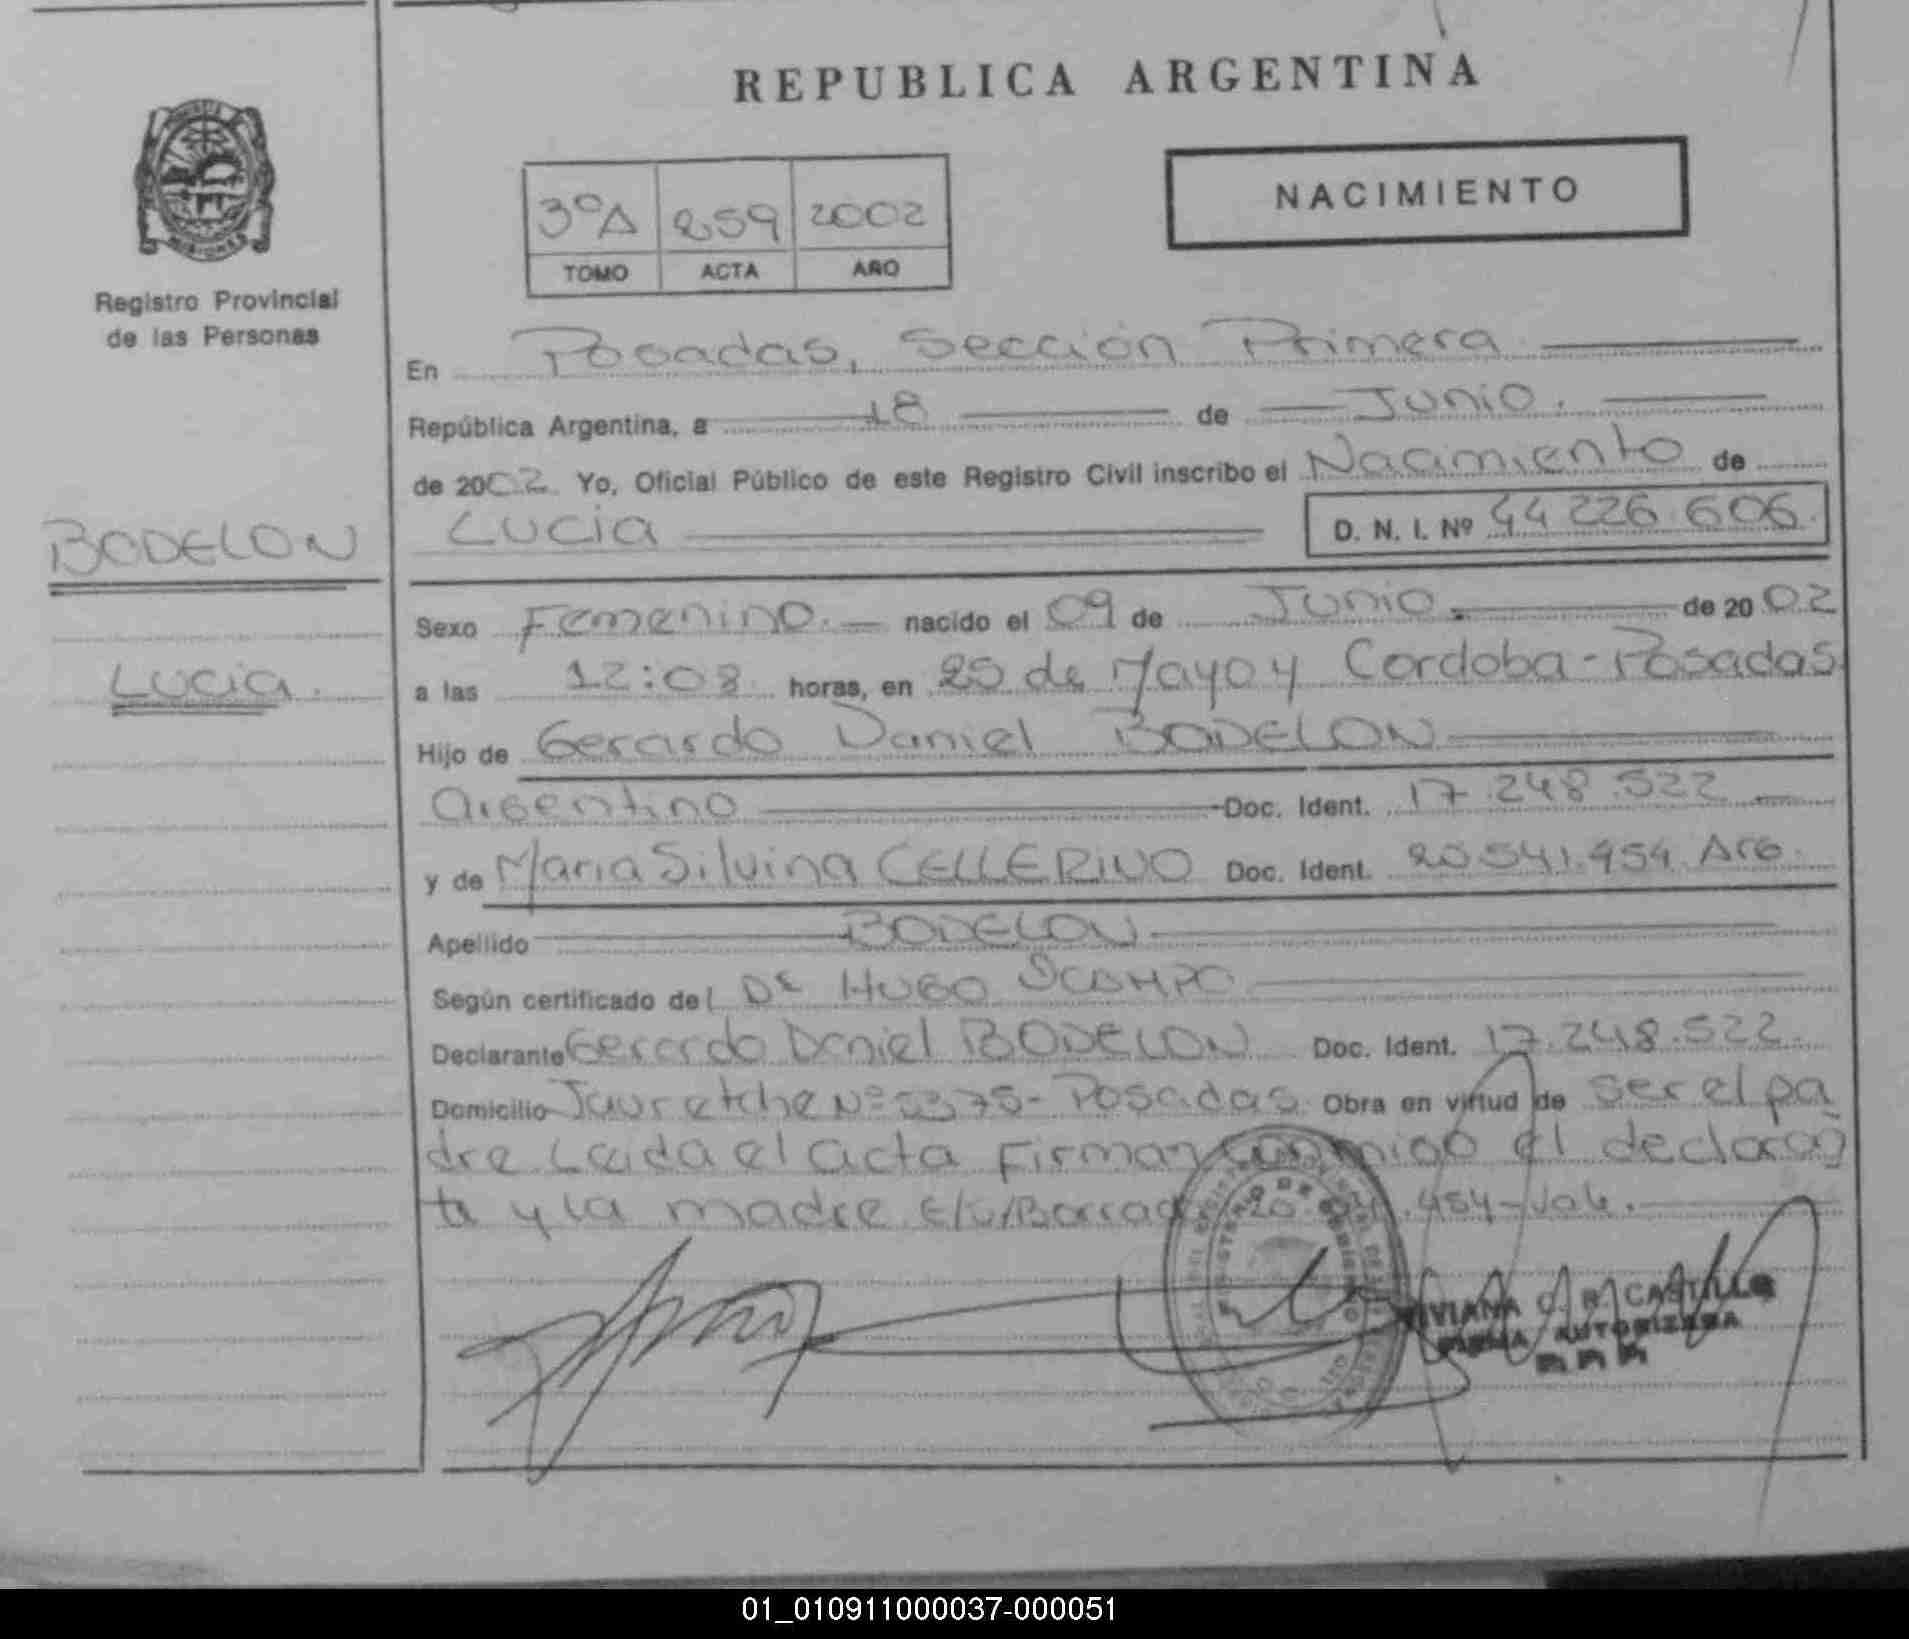 REPUBLICA ARGENTINA
NACIMIENTO
3ºA 259 2002
TOMO ACTA AÑO
Registro Provincial
de las Personas
En Posadas, Sección Primera
República Argentina, a 18 de Junio.
de 2002 Yo, Oficial Público de este Registro Civil inscribo el Nacimiento de
BODELON
Lucia D. N. I. Nº 44 226 606
Sexo Femenino. nacido el 09 de Junio. de 2002
Lucia.
a las 12:08 horas, en 25 de Mayo y Cordoba - Posadas
Hijo de Gerardo Daniel BODELON
Argentino Doc. Ident. 17.248.522
y de Maria Silvina CELLERINO Doc. Ident. 20.541.454 Arg.
Apellido BODELON
Según certificado del Dr HUGO OCAMPO
Declarante Gerardo Daniel BODELON Doc. Ident. 17.248.522.
Domicilio Jauretche Nº 5375 - Posadas Obra en virtud de ser el pa
dre Leida el acta Firman conmigo el declaran
te y la madre E/L/Borrado 20.541.454 - Vale.
MINISTERIO DE GOBIERNO
VIVIANA C. R. CASTILLO
FIRMA AUTORIZADA
01_010911000037-000051